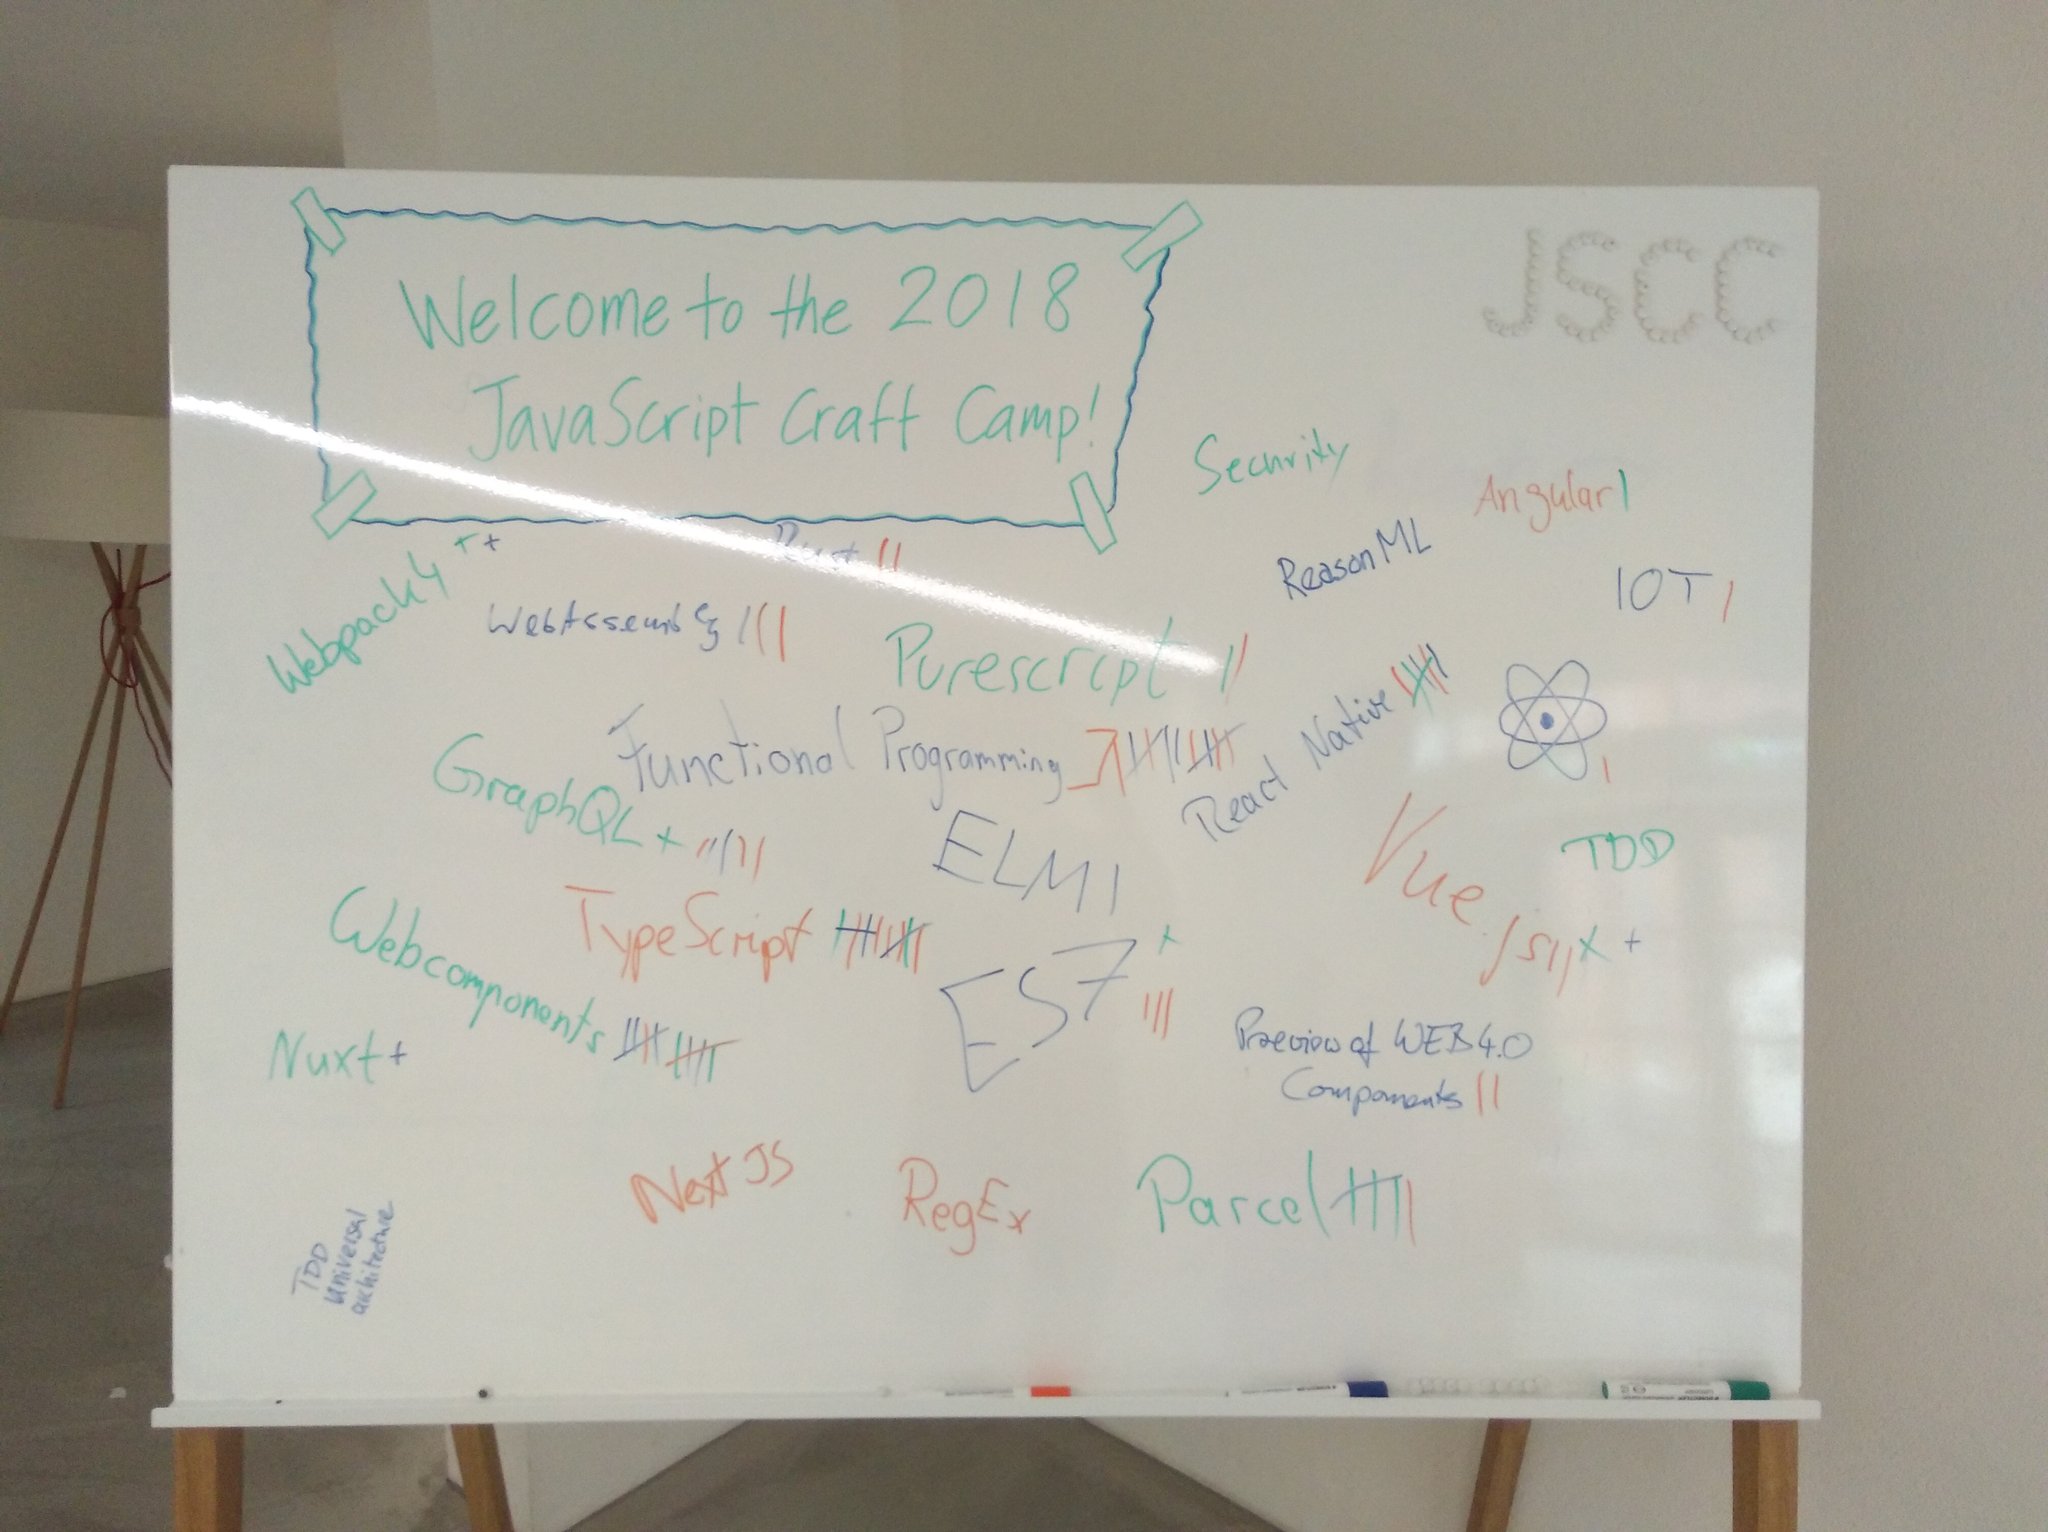 Welcome to the 2018
JavaScript Craft Camp!
JSCC
Security
Angular
Rust
ReasonML
IOT
Webpack 4 + +
WebAssembly
Purescript
React Native
Functional Programming
GraphQL +
ELM
Vue.js + +
TDD
TypeScript
Webcomponents
ES7 +
Nuxt +
Preview of WEB 4.0
Components
NextJS
RegEx
Parcel
TDD
Universal
architecture